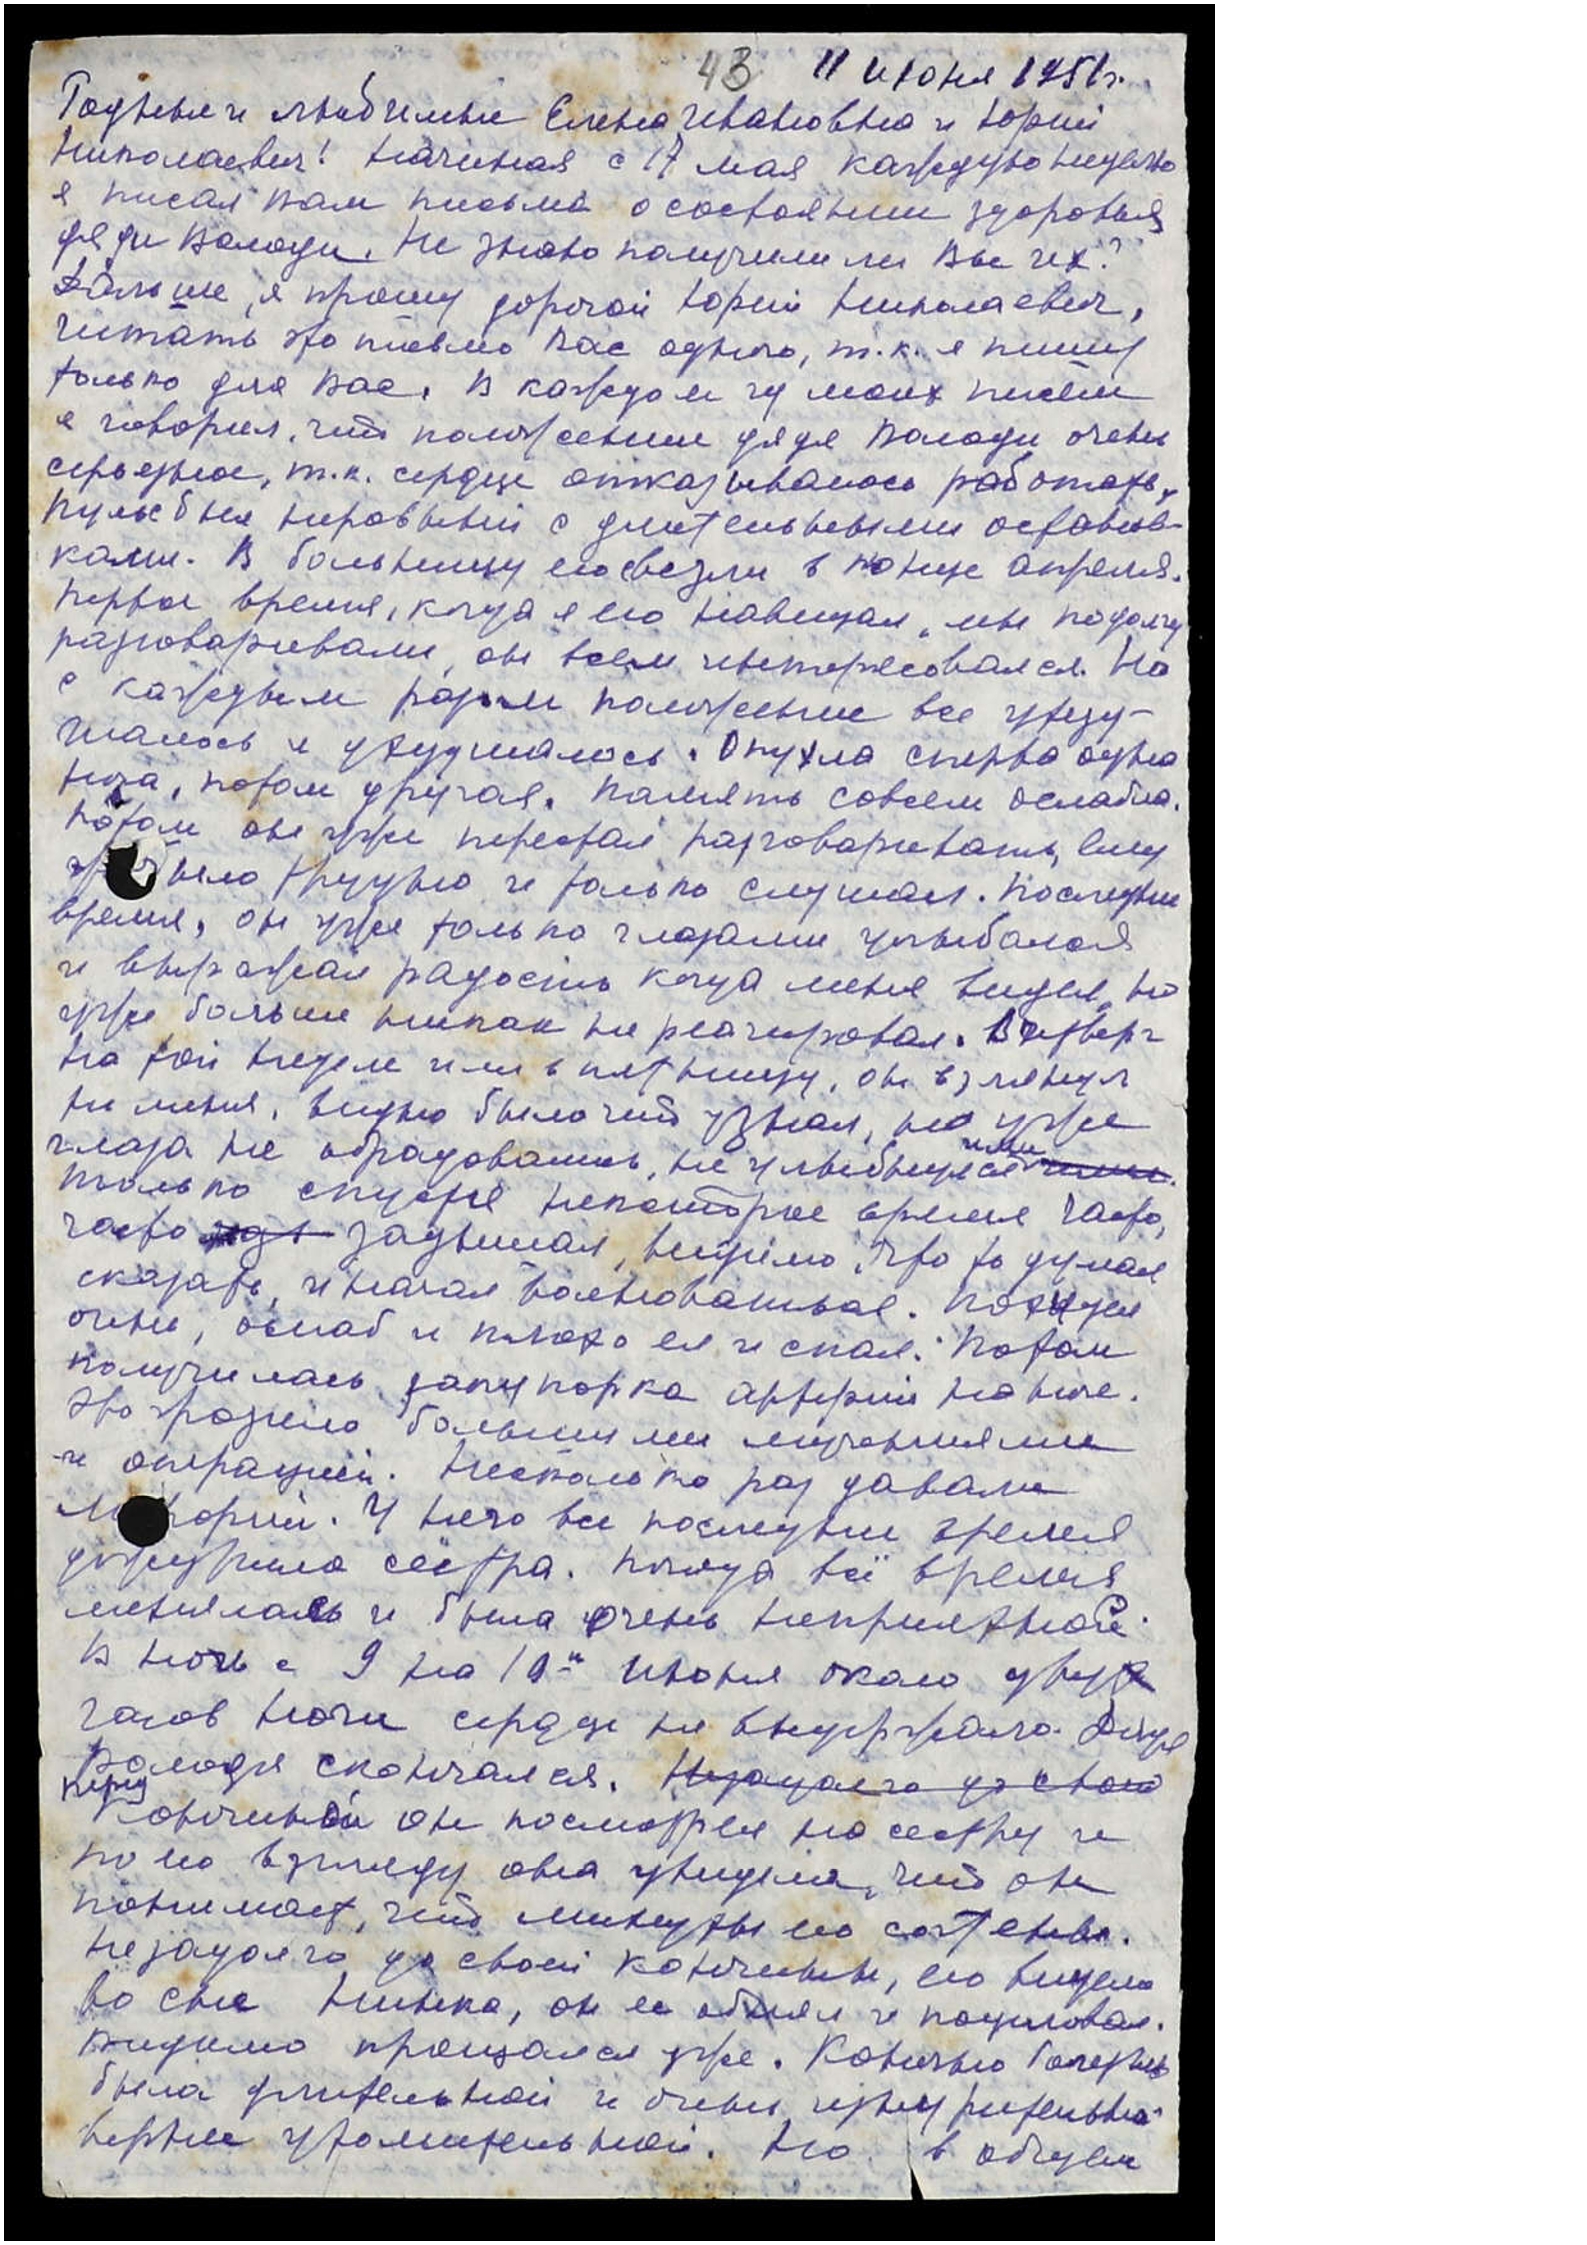 43 11 июня 1951г.
Родные и любимые Елена Ивановна и Юрий
Николаевич! Начиная с 17 мая каждую неделю
я писал Вам письма о состоянии здоровья
дяди Володи. Не знаю получили ли Вы их?
Дальше, я прошу дорогой Юрий Николаевич,
читать это письмо Вас одного, т.к. я пишу
только для Вас. В каждом из моих писем
я говорил, что положение дяди Володи очень
серьезное, т.к. сердце отказывалось работать,
пульс был неровный с длительными останов-
ками. В больницу его свезли в конце апреля.
Первое время, когда я его навещал, мы подолгу
разговаривали, он всем интересовался. Но
с каждым разом положение все ухуд-
шалось и ухудшалось. Опухла сперва одна
нога, потом другая. Память совсем ослабла.
Потом он уже перестал разговаривать, ему
это было трудно и только слушал. Последнее
время, он уже только глазами улыбался
и выражал радость когда меня видел, но
уже больше никак не реагировал. В четверг
на той неделе или в пятницу, он взглянул
на меня, видно было что узнал, но уже
глаза не обрадовались, не улыбнулся ими
только спустя некоторое время часто,
часто задышал, видимо что то думал
сказать, и начал волноваться. Похудел
очень, ослаб и плохо ел и спал. Потом
получилась закупорка артерии на ноге.
Это грозило большими мучениями
и операцией. Несколько раз давали
морфий. У него все последнее время
дежурила сестра. Погода всё время
менялась и была очень неприятной.
В ночь с 9 на 10-е июня около двух
часов ночи сердце не выдержало. Дядя
Володя скончался. Незадолго до своей
перед
кончиной он посмотрел на сестру и
по его взгляду она увидела, что он
понимает, что минуты его сочтены.
Незадолго до своей кончины, его видела
во сне Нинка, он ее обнял и поцеловал.
Видимо прощался уже. Конечно болезнь
была длительной и очень изнурительной
вернее утомительной. Но в общем